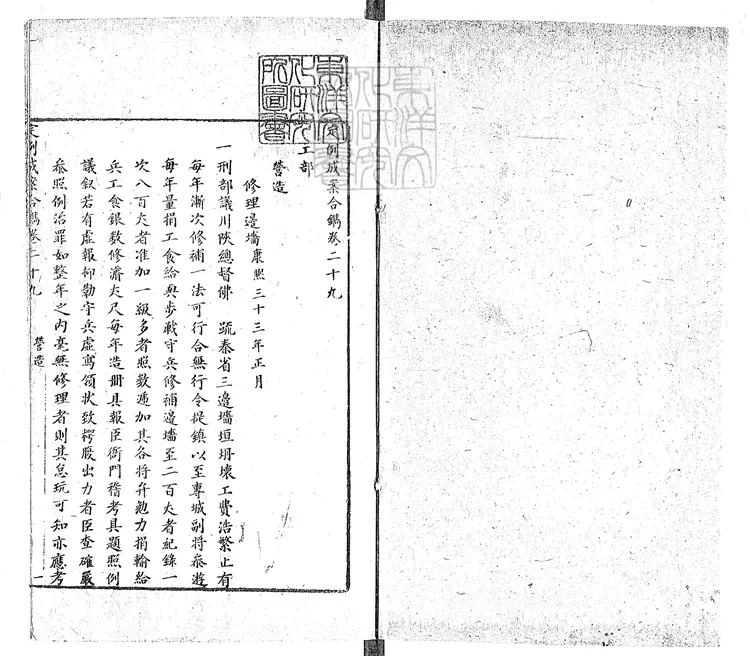 東洋文
化研究
所圖書
定例成案合鐫卷二十九
工部
營造
修理邊墻康熙三十三年正月
一刑部議川陝總督佛 疏秦省三邊墻垣坍壞工費浩繁止有
每年漸次修補一法可行合無行令提鎮以至專城副將叅遊
每年量捐工食給與步戰守兵修補邊墻至二百丈者紀錄一
次八百丈者准加一級多者照數遞加其各將弁勉力捐輸給
兵工食銀數修濬丈尺每年造冊具報臣衙門稽考具題照例
議叙若有虛報抑勒守兵虛寫領狀致楞廢出力者臣查確嚴
叅照例治罪如整年之內毫無修理者則其怠玩可知亦應考
定例成案合鐫卷二十九 營造 一